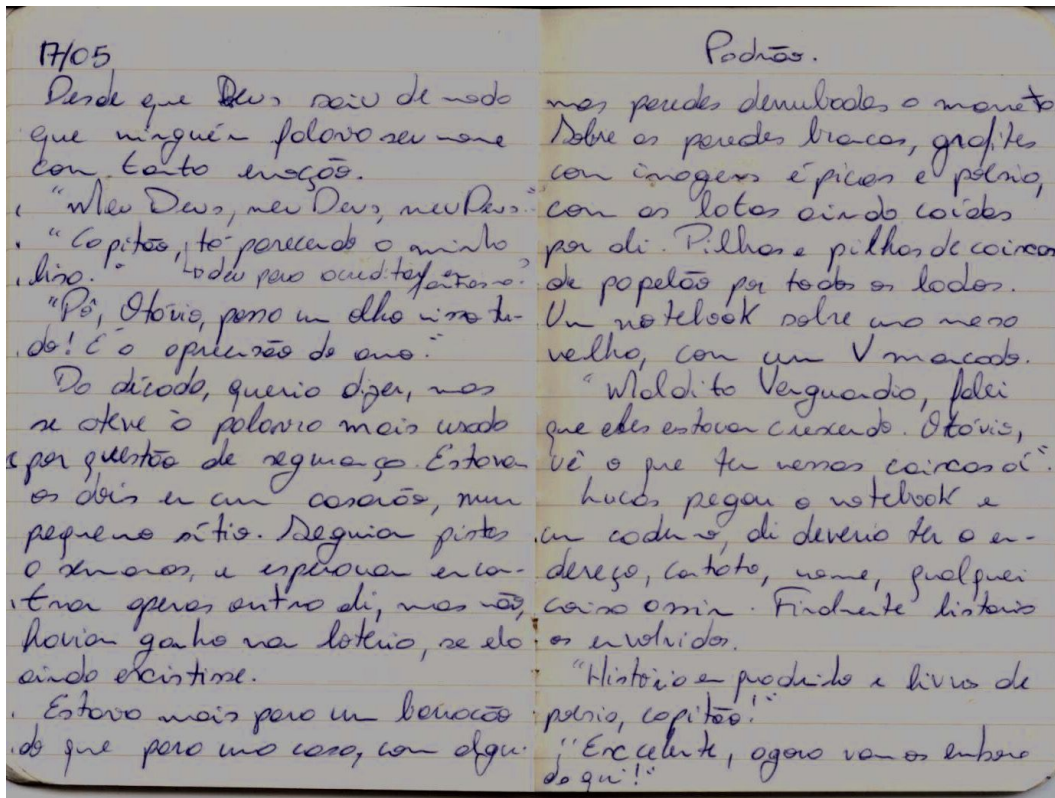 17/05
Desde que Deus saiu de moda
que ninguém falava seu nome
com tanta emoção.
"Meu Deus, meu Deus, meu Deus."
"Capitão, tá parecendo a minha
"
deu para acreditar
"Pô, Otávio, passa um olho nisso tu-
do! É a apreensão do ano."
Da década, queria dizer, mas
se ateve à palavra mais usada
por questão de segurança. Estavam
os dois em um casarão, num
pequeno sítio. Seguiam pistas
a semanas, e esperavam encon-
trar apenas outra ali, mas não,
haviam ganho na loteria, se ela
ainda existisse.
Estava mais para um barracão
do que para uma casa, com algu-
Padrão.
mas paredes derrubadas a marreta
Sobre as paredes brancas, grafites
com imagens épicas e poesia,
com as latas ainda caídas
por ali. Pilhas e pilhas de caixas
de papelão por todos os lados.
Um notebook sobre uma mesa
velha, com um V marcado.
"Maldito Vanguardia, falei
que eles estavam crescendo. Otávio,
vê o que tem nessas caixas aí".
Lucas pegou o notebook e
um caderno, ali deveria ter o en-
dereço, contato, nome, qualquer
coisa assim. Finalmente listaria
os envolvidos.
"História em quadrinho e livros de
poesia, capitão!"
"Excelente, agora vamos embora
daqui!"